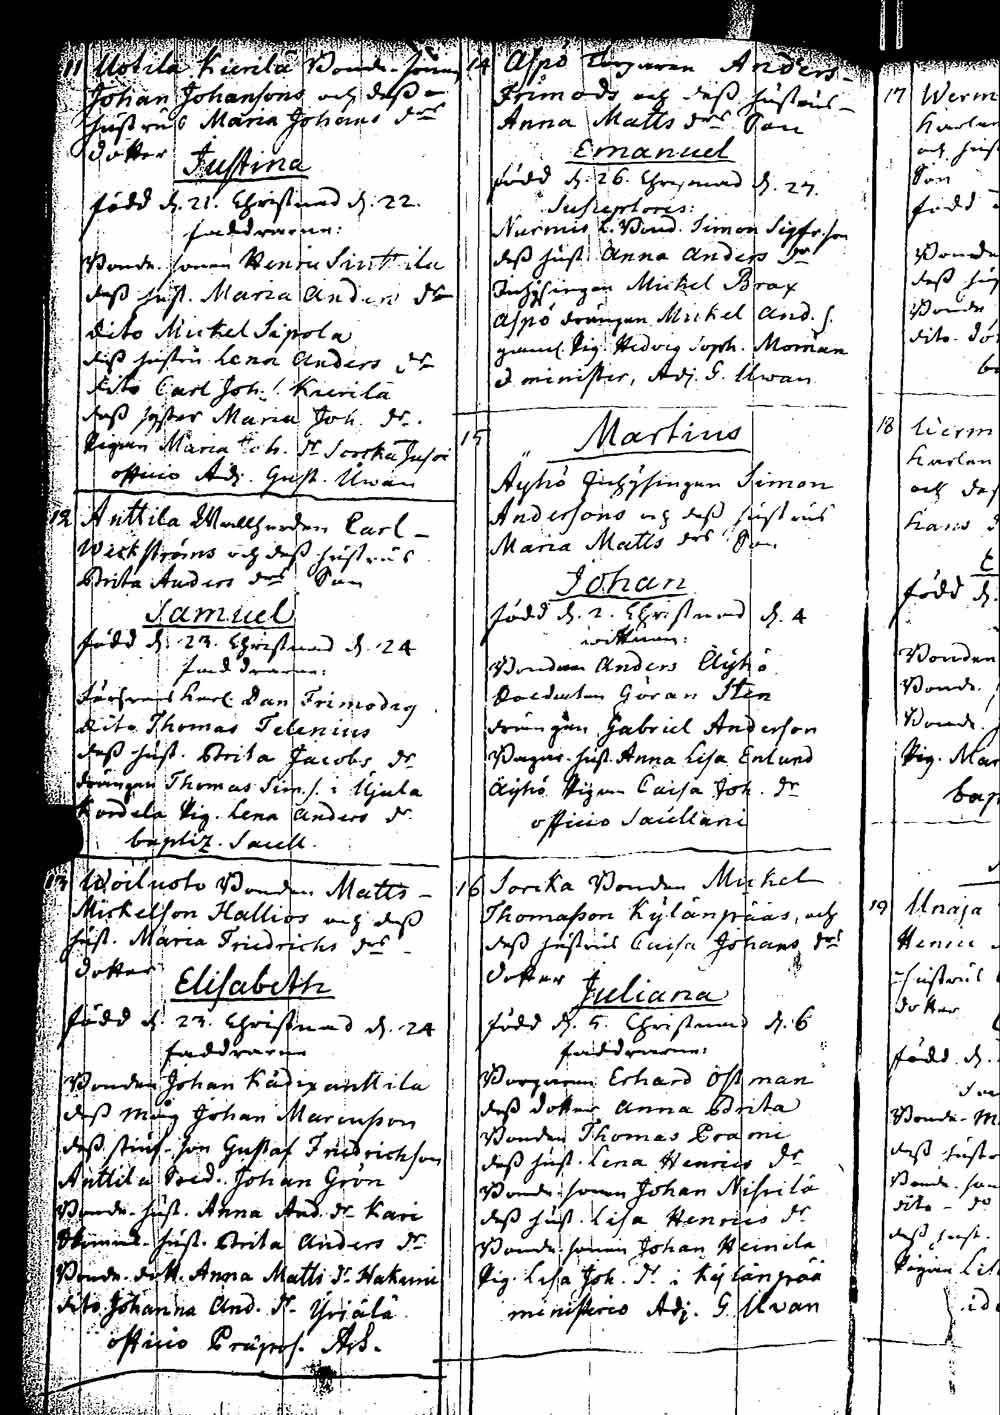 11 Uotila Kierilä Bonde-sonen
Johan Johansons och dess
hustrus Maria Johans drs
dotter
Justina
född d. 21. Christnad d. 22.
faddrarne:
Bonde-sonen Henric Sinttila
dess hust. Maria Anders dr
dito Mickel Sipola
dess hustru Lena Anders dr
dito Carl Joh. Kierilä
dess syster Maria Joh. dr.
Pigan Maria Joh. dr
officio Adj. Gust. Uwan
12 Anttila Wallherden Carl
Weckströms och dess hustrus
Brita Anders drs Son
Samuel
född d. 23. Christnad d. 24
faddrarne:
Karl Dan Frimodig
dito Thomas Telenius
dess hust. Brita Jacobs dr
drängen Thomas Sim. s. i Ujula
Kordela Pig. Lena Anders dr
baptiz. Saxell.
13 Woiluoto Bonden Matts
Mickelson Hallios och dess
hust. Maria Friedrichs drs
dotter
Elisabeth
född d. 23. Christnad d. 24
faddrarne
Bonden Johan Kädixanttila
dess måg Johan Marcusson
dess stiuf-son Gustaf Friedrichson
Anttila Sold. Johan Grön
Bonde-hust. Anna And. dr Kari
hust. Brita Anders dr
Bonde-dott. Anna Matts dr Hakuni
dito Johanna And. dr Yriälä
officio Präpos.
14 Aspö Torparen Anders
Frimods och dess hustrus
Anna Matts drs Son
Emanuel
född d. 26. Christnad d. 27.
Susceptores:
Nurmis L. Bond. Simon Sigfr. son
dess hust. Anna Anders dr
Inhysingen Mickel Brax
Aspö drängen Mickel And. s.
gaml. Pig. Hedvig Soph. Moman
minister, Adj. G. Uwan
Martius
15 Äyhö Inhysingen Simon
Andersons och dess hustrus
Maria Matts drs Son
Johan
född d. 2. Christnad d. 4
wittnen:
Bonden Anders Äyhö
Soldaten Göran Sten
drängen Gabriel Anderson
hust. Anna Lisa Enlund
Äyhö Pigan Caisa Joh. dr
officio Saxelliani
16 Sorcka Bonden Mickel
Thomasson Kylänpääs, och
dess hustrus Caisa Johans drs
dotter
Juliana
född d. 5. Christnad d. 6
faddrarne:
Borgaren Erhard Östman
dess dotter Anna Brita
Bonden Thomas Prami
dess hust. Lena Henrics dr
Bonde-sonen Johan Nihilä
dess hust. Lisa Henrics dr
Bonde-sonen Johan Heinila
Pig. Lisa Joh. dr i Kylänpää
ministerio Adj. G. Uwan
17 Werm
Karlen
och hust
Son
född
Bonden
dess hus
Bonde
dito
18 Werm
Karlen
och dess
hans
född d.
Bonden
Bonde
Bonde
Pig. Mar
bap
19 Unaja
Henric
hustrus
dotter
född d.
Bonde-M
dess hustr
Bonde-son
dito
dess hust.
Pigan Lis